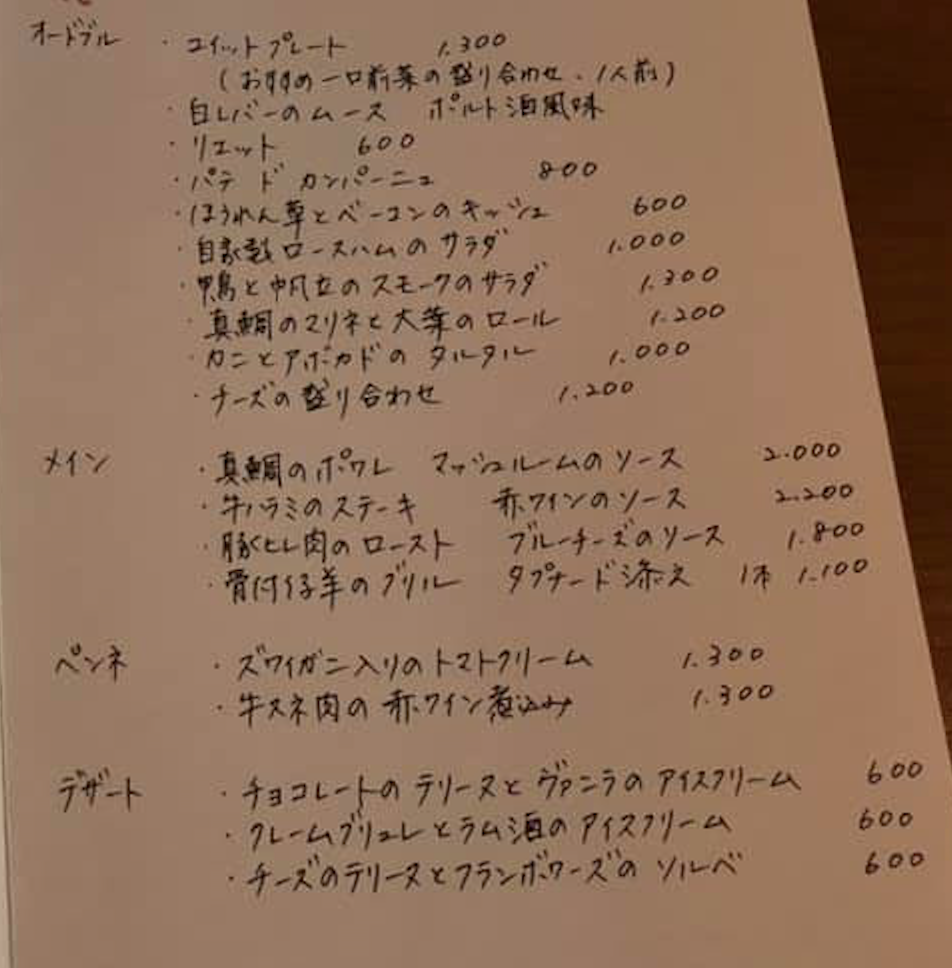 オードブル ・ユイットプレート 1.300
(おすすめ一口前菜の盛り合わせ、1人前)
・白レバーのムース ポルト酒風味
・リエット 600
・パテ ド カンパーニュ 800
・ほうれん草とベーコンのキッシュ 600
・自家製ロースハムのサラダ 1.000
・鴨と帆立のスモークのサラダ 1.300
・真鯛のマリネと大葉のロール 1.200
・カニとアボカドのタルタル 1.000
・チーズの盛り合わせ 1.200
メイン ・真鯛のポワレ マッシュルームのソース 2.000
・牛ハラミのステーキ 赤ワインのソース 2.200
・豚ヒレ肉のロースト ブルーチーズのソース 1.800
・骨付仔羊のグリル タプナード添え 1本 1.100
ペンネ ・ズワイガニ入りのトマトクリーム 1.300
・牛スネ肉の赤ワイン煮込み 1.300
デザート ・チョコレートのテリーヌとヴァニラのアイスクリーム 600
・クレームブリュレとラム酒のアイスクリーム 600
・チーズのテリーヌとフランボワーズのソルベ 600